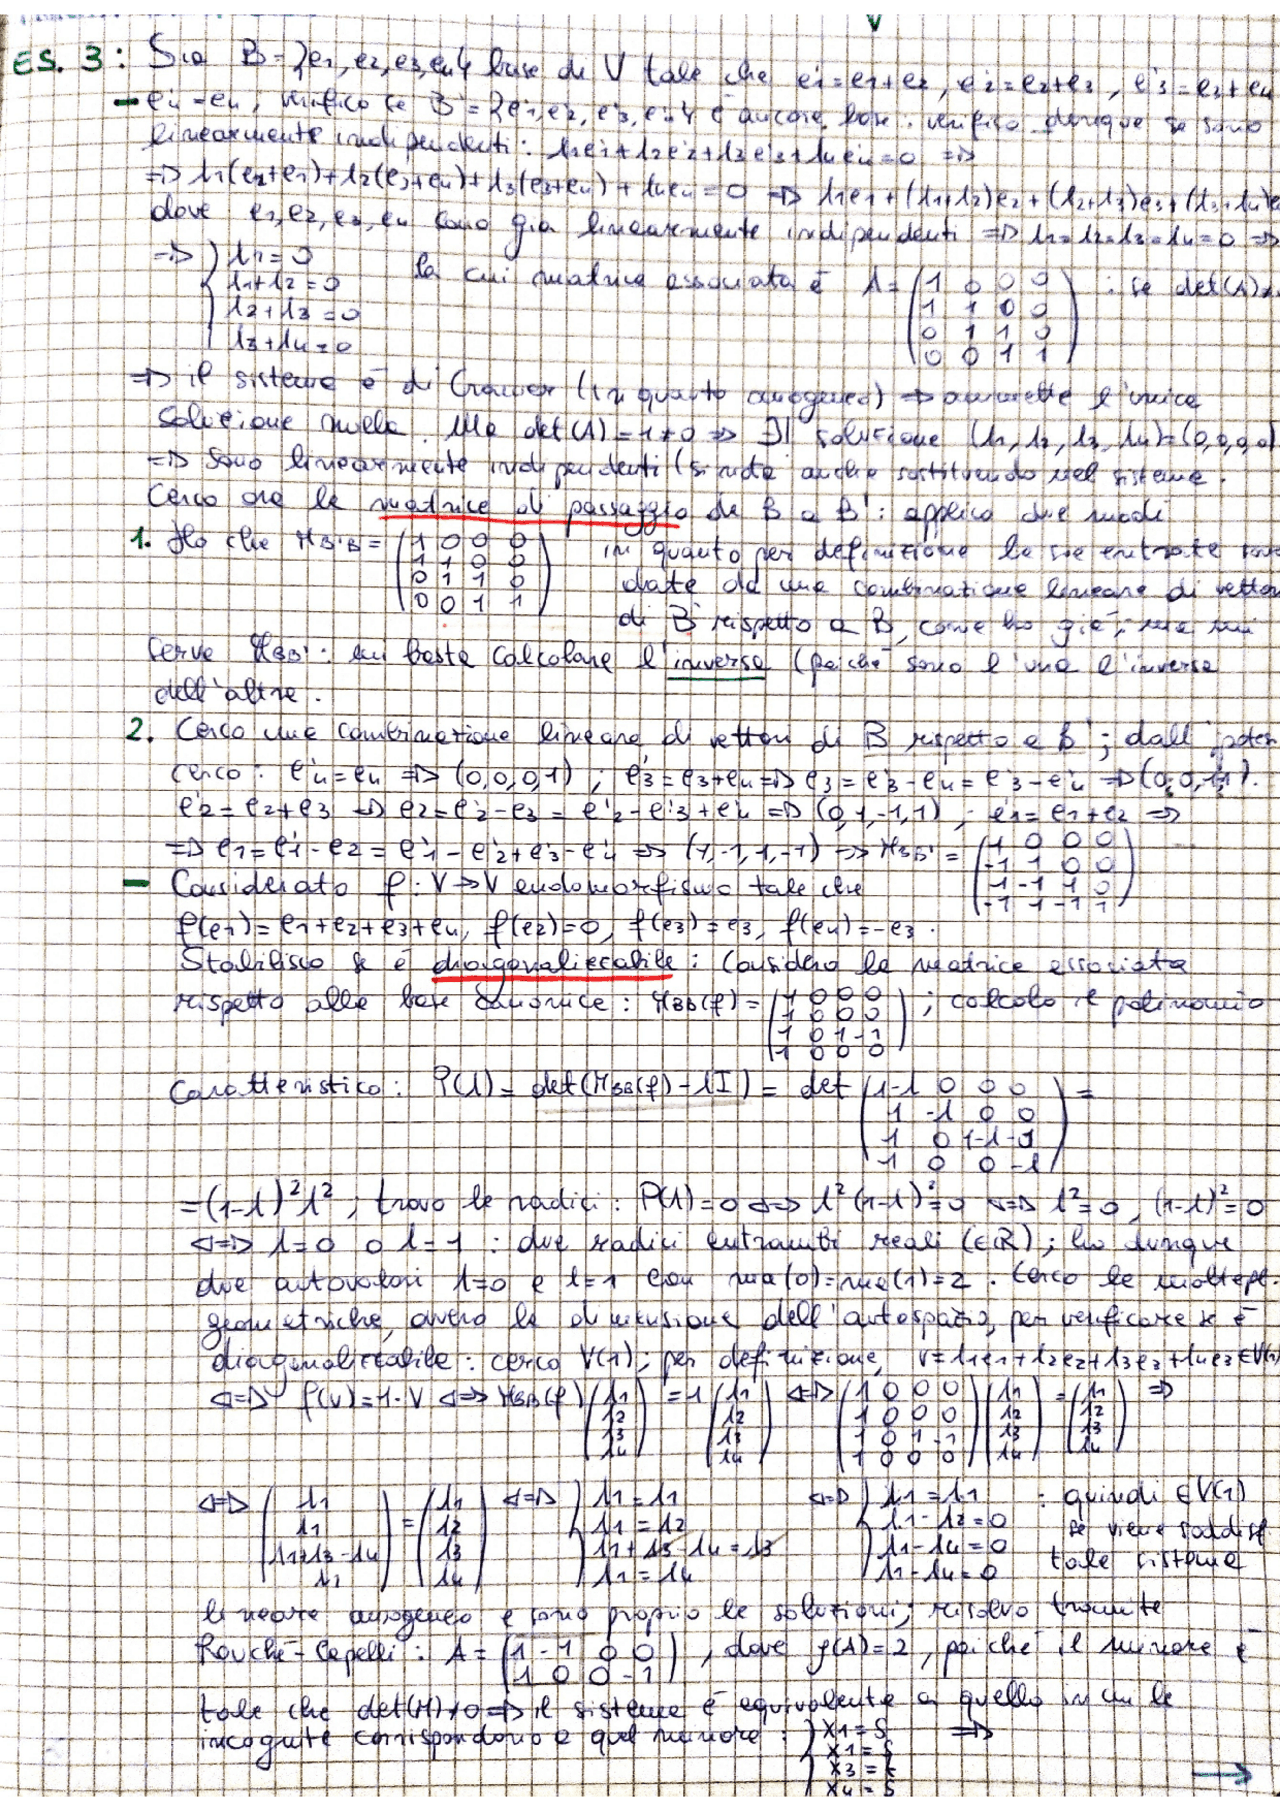 ES. 3: Sia B={e1, e2, e3, e4} base di V tale che e'1=e1+e2, e'2=e2+e3, e'3=e3+e4
- e'4=e4, verifico se B'={e'1, e'2, e'3, e'4} è ancora base: verifico dunque se sono
linearmente indipendenti: λ1e'1+λ2e'2+λ3e'3+λ4e'4=0 =>
=> λ1(e2+e1)+λ2(e3+e4)+λ3(e3+e4)+λ4e4=0 => λ1e1+(λ1+λ2)e2+(λ2+λ3)e3+(λ3+λ4)e
dove e1, e2, e3, e4 sono già linearmente indipendenti => λ1=λ2=λ3=λ4=0 =>
=> { λ1=0 la cui matrice associata è A= (1 0 0 0) : se det(A)≠
λ1+λ2=0 1 1 0 0
λ2+λ3=0 0 1 1 0
λ3+λ4=0 0 0 1 1
=> il sistema è di Cramer (in quanto omogeneo) => ammette l'unica
soluzione nulla. Ma det(A)=1≠0 => ∃! soluzione (λ1, λ2, λ3, λ4)=(0,0,0,0)
=> sono linearmente indipendenti (si nota anche sostituendo nel sistema.
Cerco ora la matrice di passaggio da B a B': applico due modi
1. Ho che MB'B = (1 0 0 0) in quanto per definizione le sue entrate sono
1 1 0 0
0 1 1 0 date da una combinazione lineare di vettori
0 0 1 1
di B' rispetto a B, come ho già, ma mi
serve MBB': mi basta calcolare l'inversa (poiché sono l'una l'inversa
dell'altra.
2. Cerco una combinazione lineare di vettori di B rispetto a B'; dall'
cerco: e'4=e4 => (0,0,0,1) ; e'3=e3+e4 => e3=e'3-e4=e'3-e'4 => (0,0,1,1).
e'2=e2+e3 => e2=e'2-e3=e'2-e'3+e'4 => (0,1,-1,1) ; e'1=e1+e2 =>
=> e1=e'1-e2=e'1-e'2+e'3-e'4 => (1,-1,1,-1) => MBB' = (1 0 0 0)
-1 1 0 0
1 -1 1 0
-1 1 -1 1
- Considerato f: V→V endomorfismo tale che
f(e1)=e1+e2+e3+e4, f(e2)=0, f(e3)=e3, f(e4)=-e3.
Stabilisco se è diagonalizzabile: considero la matrice associata
rispetto alla base canonica: MBB(f)= (1 0 0 0) ; calcolo il polinomio
1 0 0 0
1 0 1 -1
1 0 0 0
Caratteristico: P(λ)= det(MBB(f)-λI)= det (1-λ 0 0 0) =
1 -λ 0 0
1 0 1-λ -1
1 0 0 -λ
=(1-λ)²λ² ; trovo le radici: P(λ)=0 <=> λ²(1-λ)²=0 <=> λ²=0, (1-λ)²=0
<=> λ=0 o λ=1 : due radici entrambi reali (∈R); ho dunque
due autovalori λ=0 e λ=1 con ma(0)=ma(1)=2. Cerco le moltepl.
geometriche, ovvero la dimensione dell'autospazio, per verificare se è
diagonalizzabile: cerco V(1); per definizione, v=λ1e1+λ2e2+λ3e3+λ4e3 ∈V(1)
<=> f(v)=1·v <=> MBB(f) (λ1) =1 (λ1) <=> (1 0 0 0) (λ1) = (λ1) =>
λ2 λ2 1 0 0 0 λ2 λ2
λ3 λ3 1 0 1 -1 λ3 λ3
λ4 λ4 1 0 0 0 λ4 λ4
<=> (λ1) = (λ1) <=> { λ1=λ1 <=> { λ1=λ1 : quindi ∈V(1)
λ1 λ2 λ1=λ2 λ1-λ2=0 se viene soddisf
λ1+λ3-λ4 λ3 λ1+λ3-λ4=λ3 λ1-λ4=0 tale sistema
λ1 λ4 λ1=λ4 λ1-λ4=0
lineare omogeneo e sono proprio le soluzioni; risolvo tramite
Rouché-Capelli: A= (1 -1 0 0) , dove ρ(A)=2, poiché il minore è
1 0 0 -1
tale che det(M)≠0 => il sistema è equivalente a quello in cui le
incognite corrispondono a quel minore: { x1=s =>
x1=s
x3=t
x4=s
→